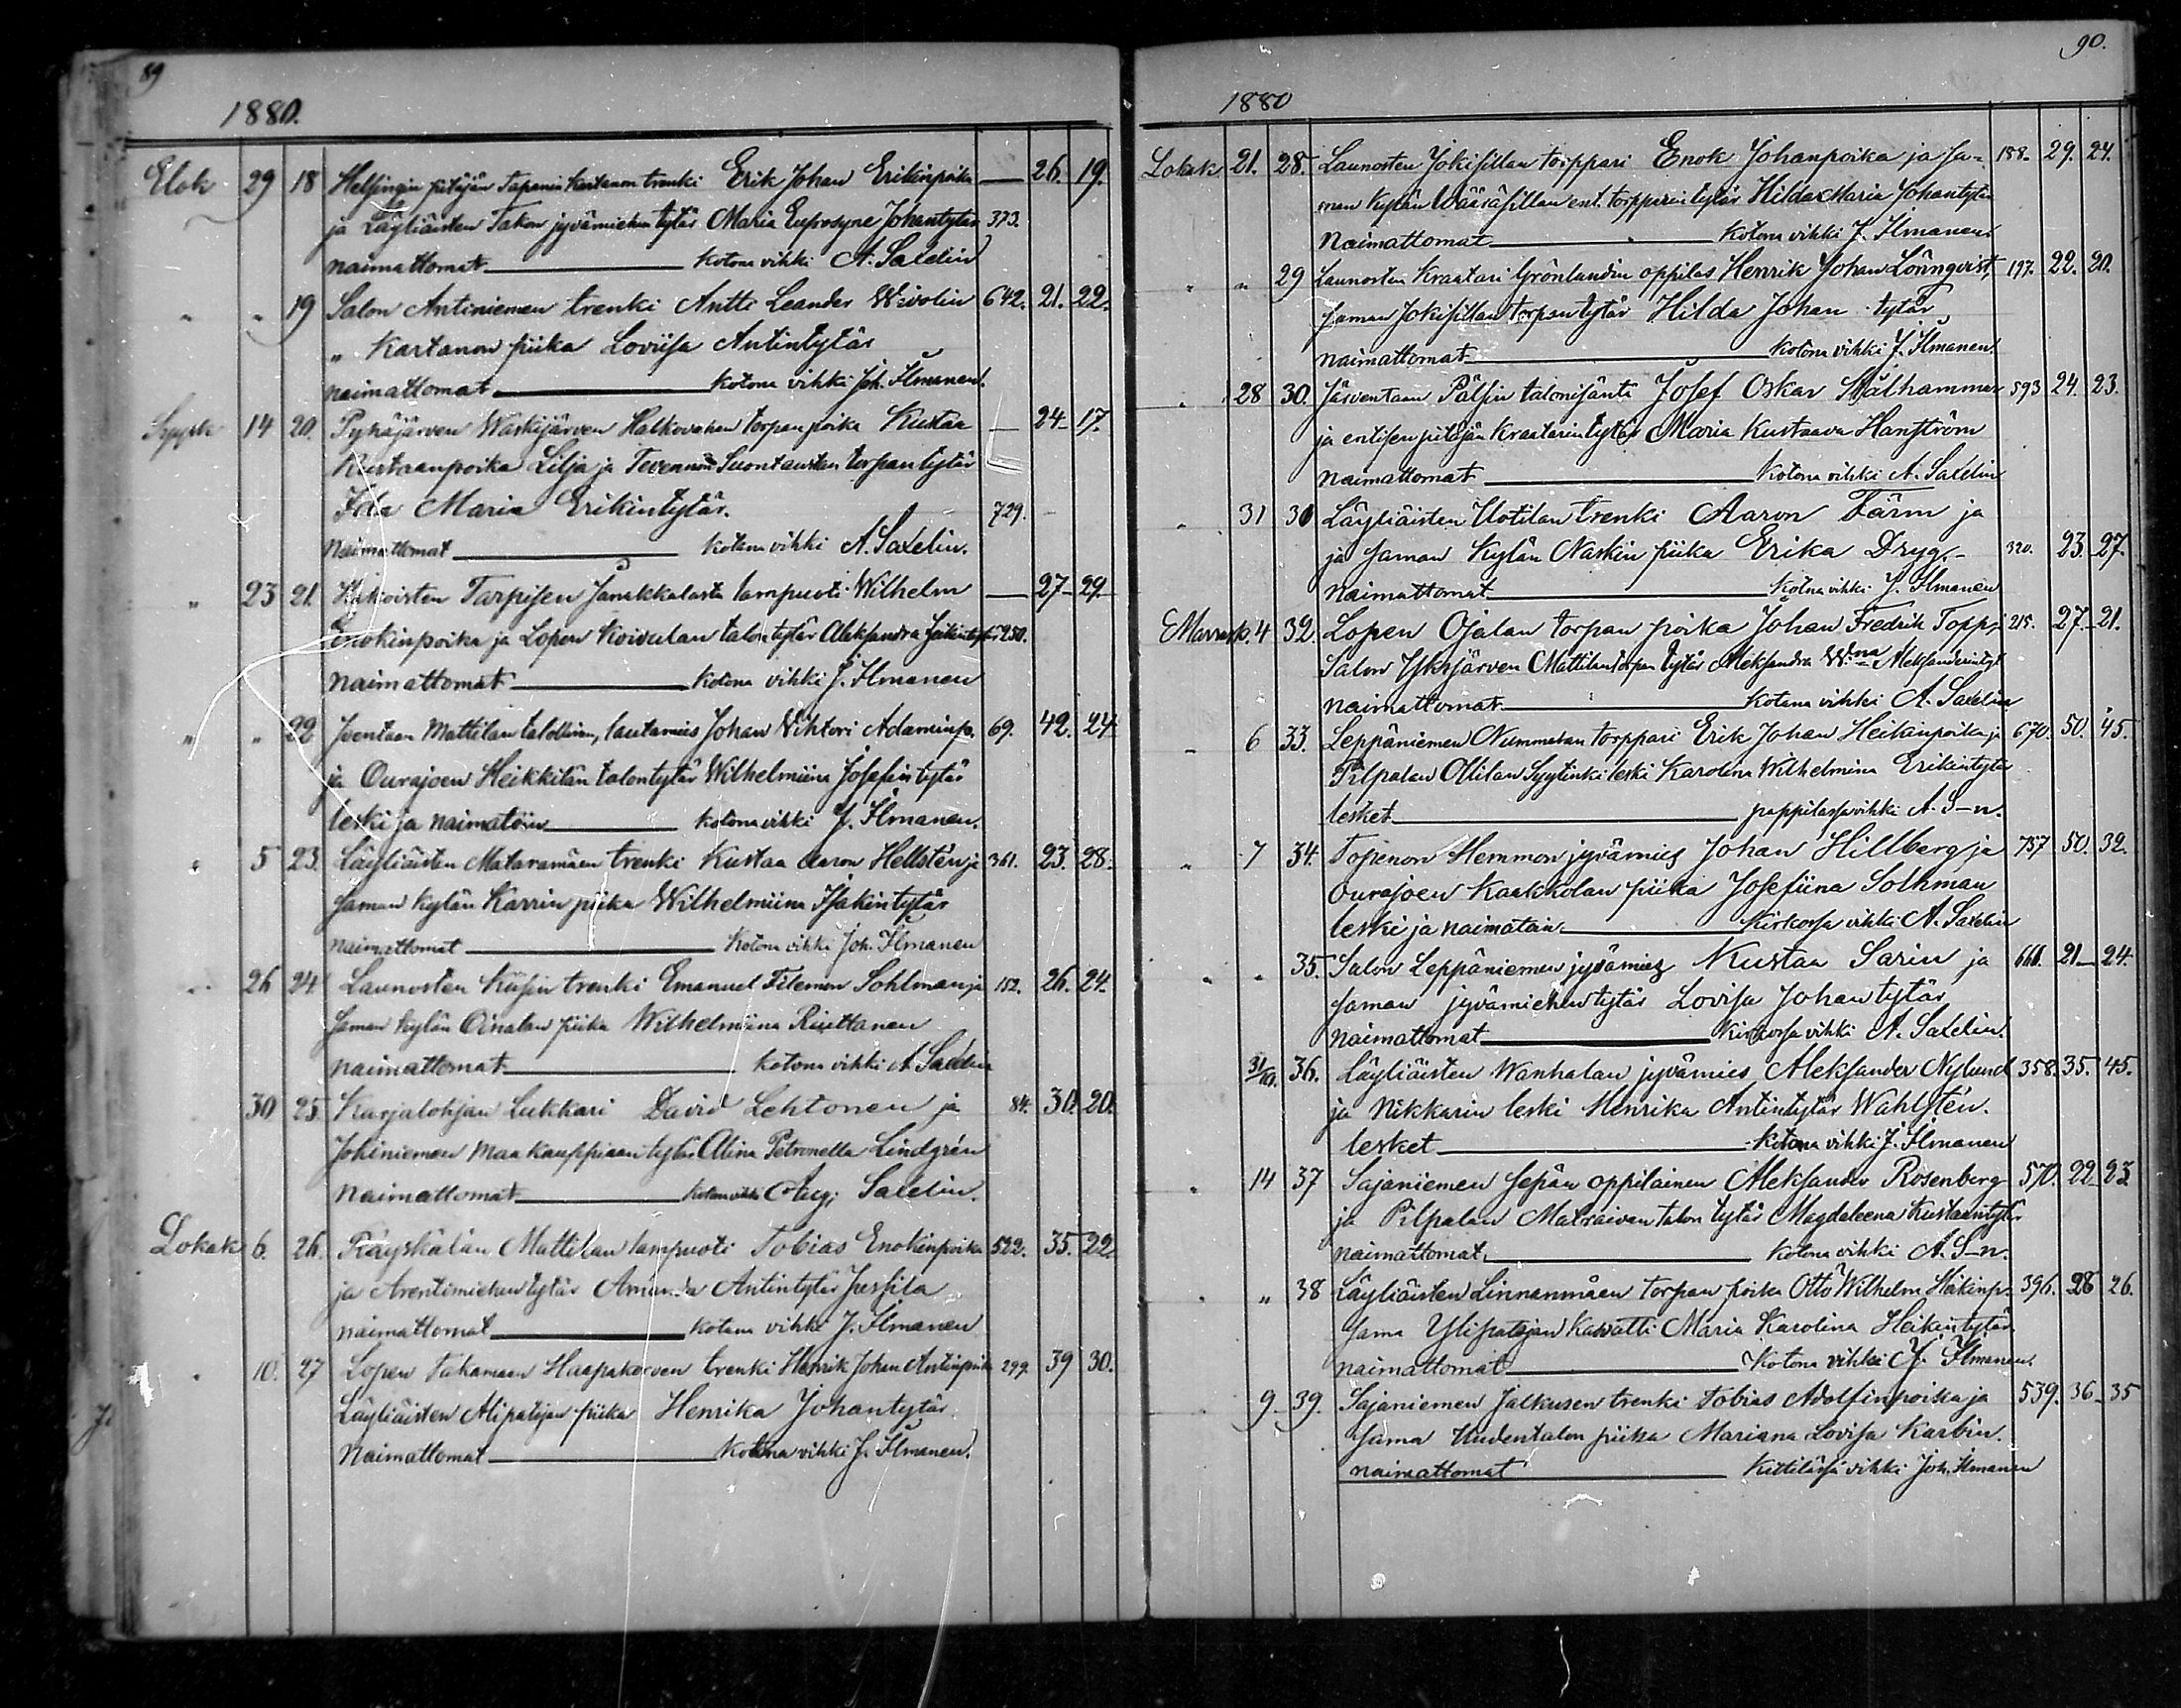 89
1880.
Elok 29 18 Helsingin pitäjän Tapanin kartanon trenki Erik Johan Erikinpoika — 26. 19.
ja Läyliäisten Takon jyvämiehen tytär Maria Euprosyne Johantytär 373.
naimattomat — kotona vihki A. Saxelin
" " 19 Salon Antiniemen trenki Antti Leander Wivolin 642. 21. 22.
" Kartanon piika Loviisa Antintytär
naimattomat — kotona vihki Joh. Ilmanen.
Syysk 14 20. Pyhäjärven Waskijärven Halkovahan torpan poika Kustaa — 24 17.
Kustaanpoika Lilja ja Tevännön Suontaustan torpan tytär
Ida Maria Erikintytär. 729.
Naimattomat — kotona vihki A. Saxelin.
" 23 21. Hakoisten Tarpisen Janakkalasta lampuoti Wilhelm — 27 29
Enokinpoika ja Lopen Koivulan talon tytär Aleksandra 250.
naimattomat — kotona vihki J. Ilmanen
" " 22 Joentaan Mattilan talollinen, lautamies Johan Viktori Adaminp. 69. 42. 24
ja Ourajoen Heikkilän talontytär Wilhelmiina Josefintytär
leski ja naimatoin — kotona vihki J. Ilmanen.
" 5 23. Läyliäisten Mataramäen trenki Kustaa Aaron Hellstén ja 361. 23. 28.
saman kylän Karrin piika Wilhelmiina Isakintytär
naimattomat — kotona vihki Joh. Ilmanen
" 26 24. Launosten Küsin trenki Emanuel Filemon Sohlman ja 152. 26. 24.
saman kylän Oinalan piika Wilhelmiina Riuttanen
naimattomat — kotona vihki A Saxelin
30 25. Karjalohjan Lukkari David Lehtonen ja 84. 30. 20.
Jokiniemen Maakauppiaan tytär Alina Petronella Lindgrén
Naimattomat — kotona vihki Aug. Saxelin.
Lokak 6. 26. Räyskälän Mattilan lampuoti Tobias Enokinpoika 522. 35. 22
ja Arentimiehen tytär Amanda Antintytär
naimattomat — kotona vihki J. Ilmanen
" 10. 27 Lopen Takamaan Haapakorven trenki Henrik Johan Antinpoika 299. 39 30.
Läyliäisten Alipatojan piika Henrika Johantytär
Naimattomat — kotona vihki J. Ilmanen.
90.
1880
Lokak 21. 28. Launosten Jokisillan torppari Enok Johanpoika ja sa- 188. 29. 24.
man kylän Wääräsillan ent. torpparin tytär Hilda Maria Johantytär
naimattomat — kotona vihki J. Ilmanen.
" " 29 Launosten Kraatari Grönlandin oppilas Henrik Johan Lönnqvist, 197. 22. 20.
saman Jokisillan torpan tytär Hilda Johan tytär
naimattomat — kotona vihki J. Ilmanen.
" 28 30. Järventaan Pälsin talonisäntä Josef Oskar Stålhammar 593 24. 23.
ja entisen pitäjän kraatarin tytär Maria Kustaava Hanström
naimattomat — kotona vihki A. Saxelin
" 31 31 Läyliäisten Uotilan trenki Aaron Färm ja
ja saman kylän Naskin piika Erika Dryg.- 320. 23. 27.
naimattomat — kotona vihki J. Ilmanen
Marrask. 4 32. Lopen Ojalan torpan poika Johan Fredrik Topp, 215. 27. 21.
Salon Yksjärven Mattilan torpan tytär Aleksandra W:na Aleksanderintyt
naimattomat — kotona vihki A. Saxelin
" 6 33. Leppäniemen Nummelan torppari Erik Johan Heikinpoika ja 670. 50. 45.
Pilpalan Ollilan Syytinki leski Karolina Wilhelmina Erikintytär
lesket — pappilassa vihki A. S-n.
" 7 34. Topenon Hemmon jyvämies Johan Hillberg ja 757 50. 32.
Ourajoen Kaakkolan piika Josefiina Solhman
leski ja naimatoin — Kirkossa vihki A. Saxelin
" " 35. Salon Leppäniemen jyvämies Kustaa Sarin ja 661. 21 24.
saman jyvämiehen tytär Lovisa Johantytär
naimattomat — Kirkossa vihki A. Saxelin.
31/10. 36. Läyliäisten Wanhalan jyvämies Aleksander Nylund 358. 35. 45.
ja Nikkarin leski Henrika Antintytär Wahlstén.
lesket — kotona vihki J. Ilmanen
" 14 37 Sajaniemen sepän oppilainen Aleksander Rosenberg 570. 22 23
ja Pilpalan Matraivan talon tytär Magdaleena Kustaantytär
naimattomat, — kotona vihki A. S-n.
" " 38 Läyliäisten Linnanmäen torpan poika Otto Wilhelm 396. 28 26.
sama Ylipatojan kasvatti Maria Karolina Heikintytär
naimattomat — kotona vihki J. Ilmanen.
9 39. Sajaniemen Jalkusen trenki Tobias Adolfinpoika ja 539. 36 35
sama Uudentalon piika Mariana Lovisa Karbin.
naimattomat — Kittilässä vihki Joh. Ilmanen